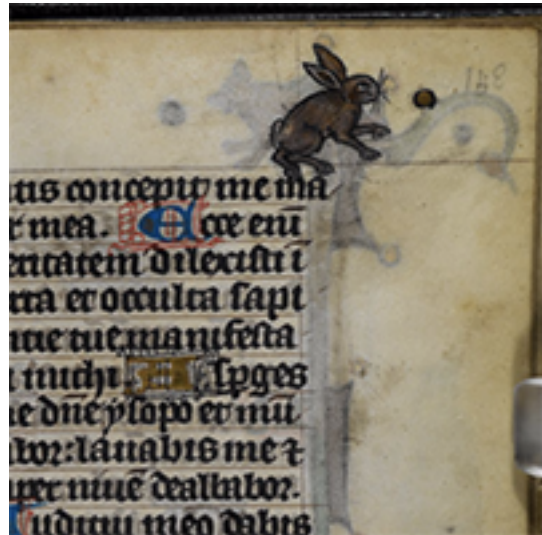 tis concepit me ma
mea. Ecce eni
eritatem dilexisti i
rta et occulta sapi
ntie tue manifesta
michi. Asperges
e dne ysopo et mu
abor: lavabis me ⁊
uper nive dealbabor.
Auditui meo dabis